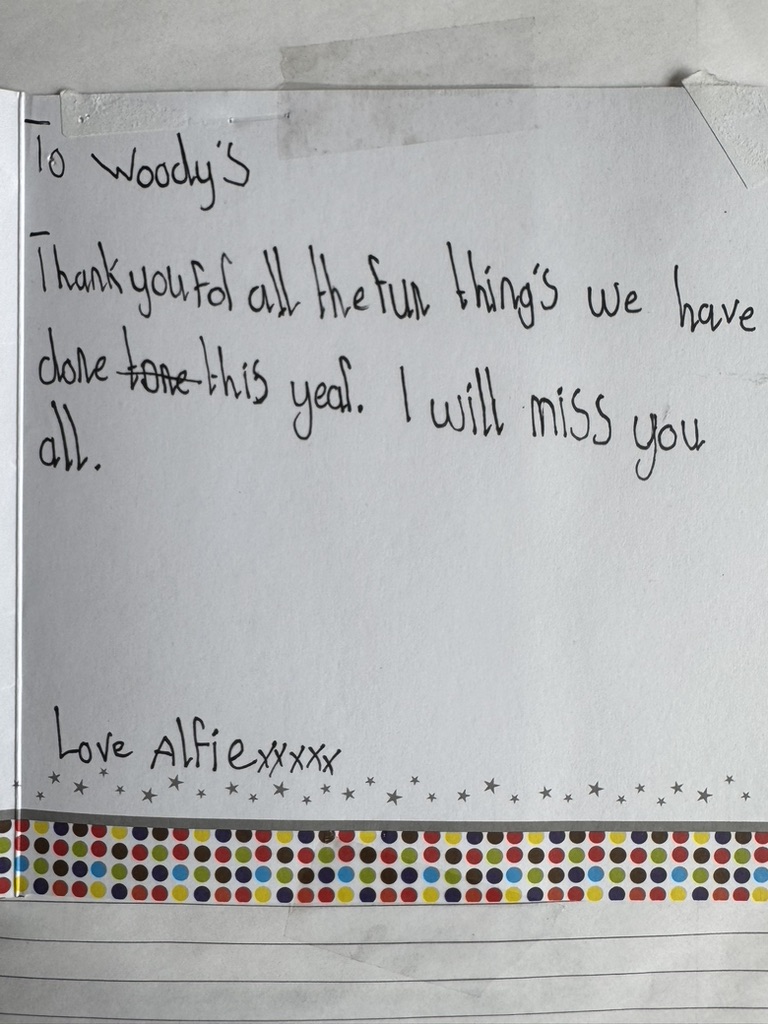 To Woody's
Thank you for all the fun thing's we have
done tone this year. I will miss you
all.
Love Alfie xxxxx